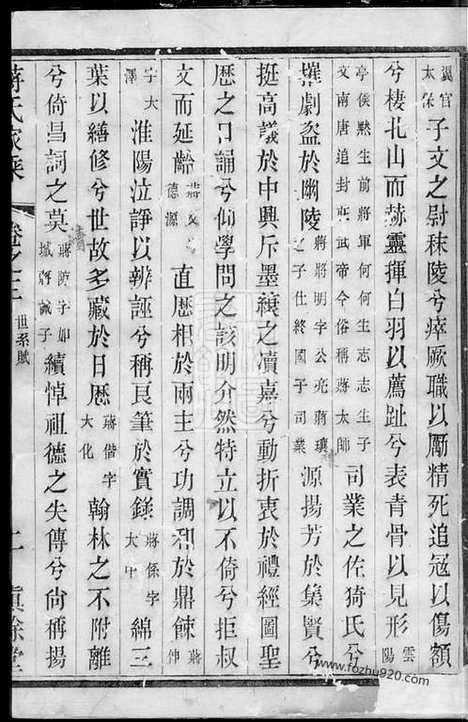 翼官太保子文之尉秣陵兮瘁厥職以勵精死追冠以傷額
兮棲北山而赫靈揮白羽以薦趾兮表青骨以見形雲陽
亭侯默生前將軍何何生志志生子文南唐追封武帝今俗稱蔣太師司業之佐猗氏兮
摧劇盜於幽陵蔣將明字公亮蔣瓌之子仕終國子司業源揚芳於集賢兮
挺高議於中興斥墨縗之瀆嘉兮動折衷於禮經圖聖
歴之日誦兮仰學問之該明介然特立以不倚兮拒叔
文而延齡蔣乂字德源直歴相於兩主兮功調和於鼎餗蔣伸
字大澤淮陽泣諍以辨誣兮稱良筆於實錄蔣係字大甲綿三
葉以繕修兮世故多藏於日歴蔣偕字大化翰林之不附離
兮倚昌詞之莫蔣防子如城誠子續悼祖德之失傳兮尙稱揚
蔣氏家乘
卷之三
世系賦
二
慎餘堂
www.fozhu920.com